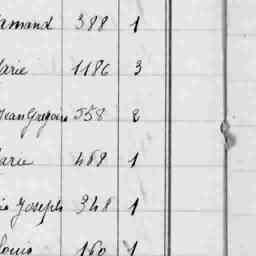 amand 388 1
arie 1186 3
Jean Grégoire 558 2
arie 488 1
is Joseph 348 1
louis 160 1